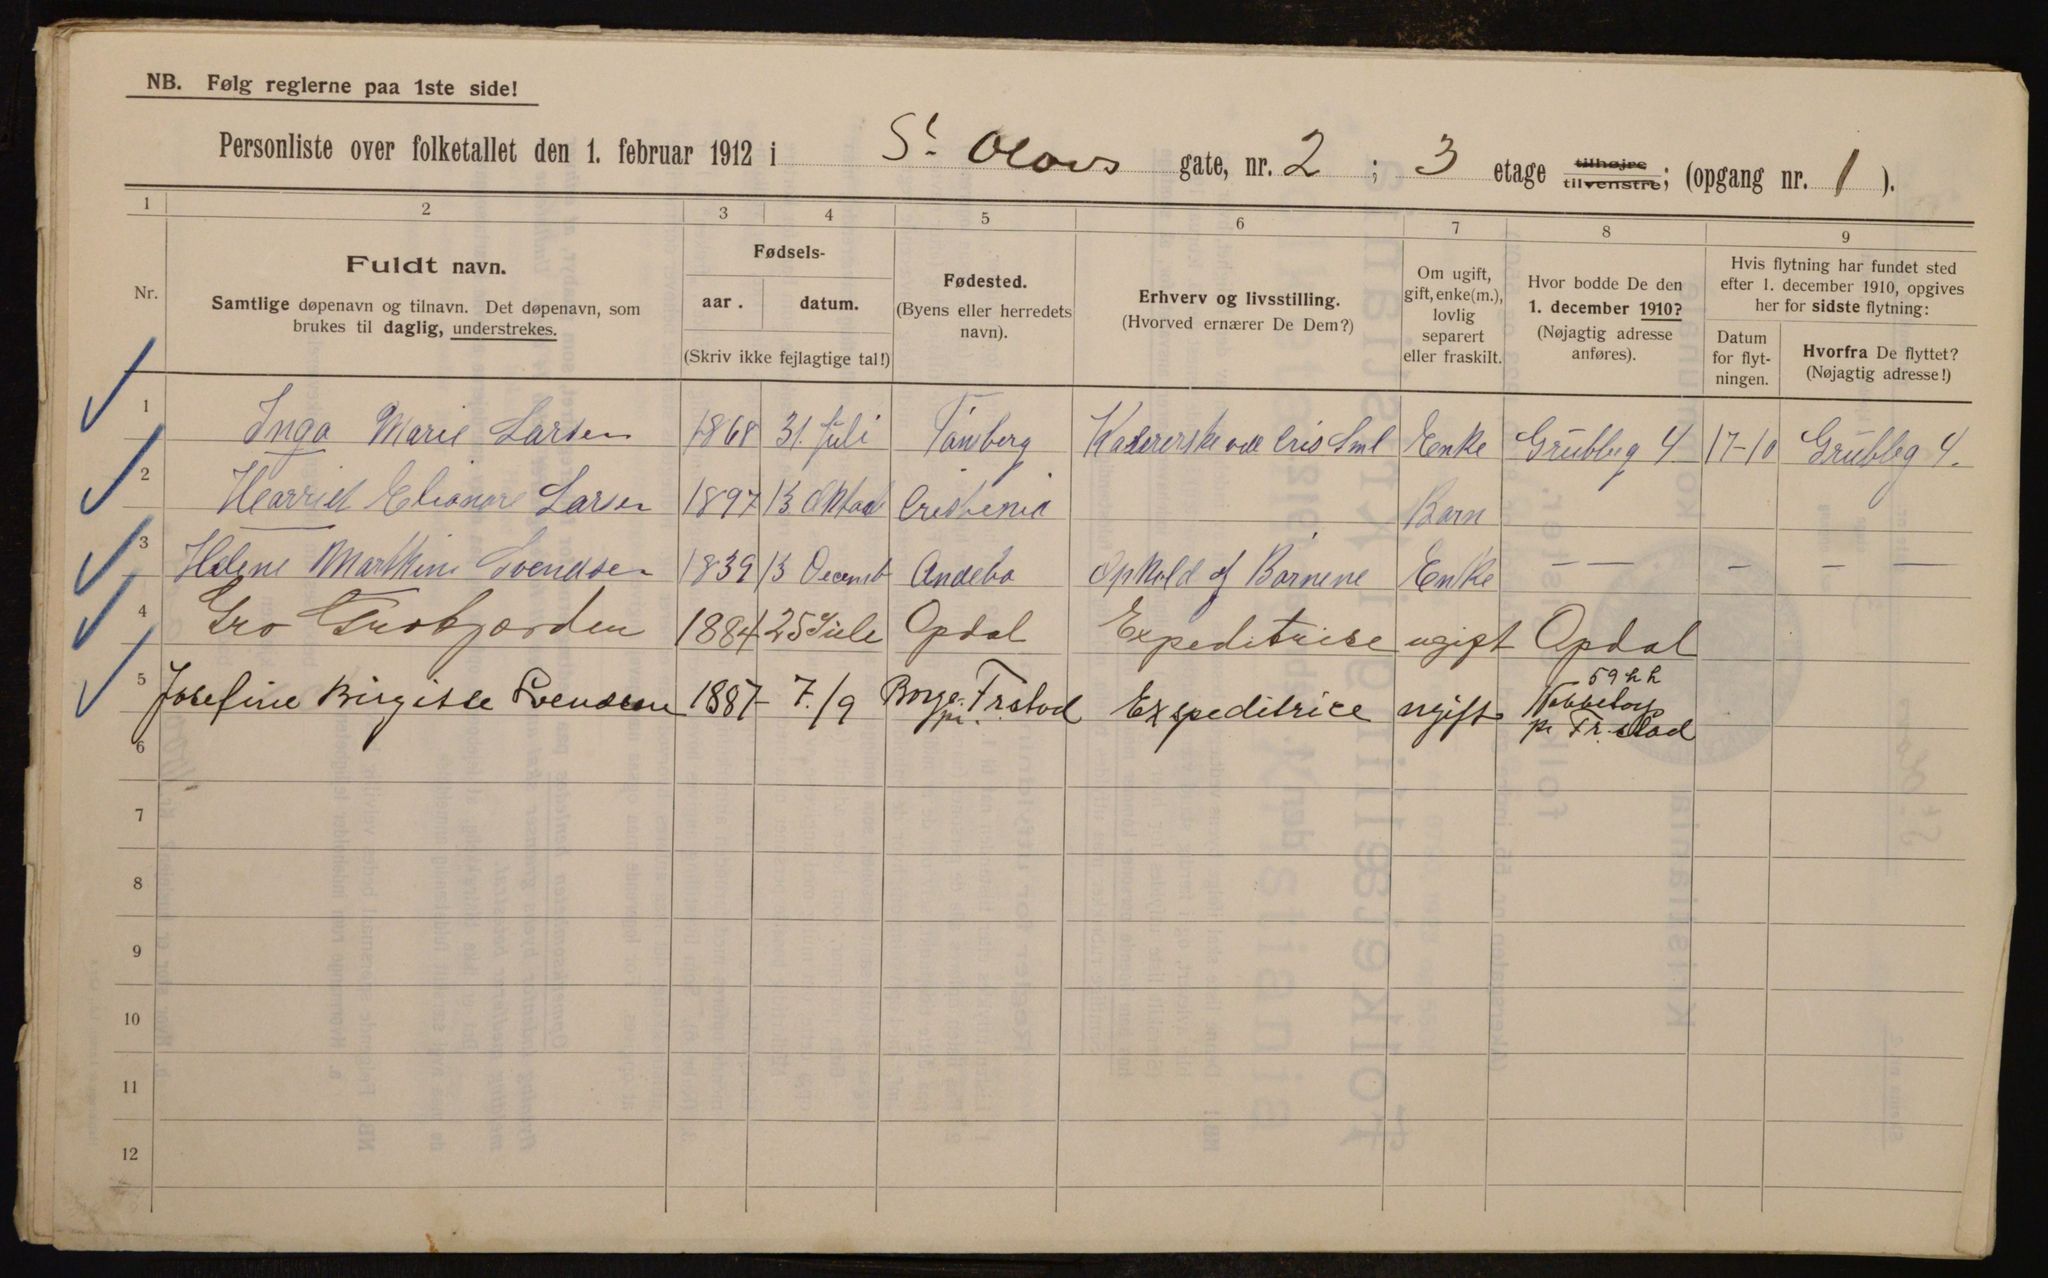 NB. Følg reglerne paa 1ste side!
Personliste over folketallet den 1. februar 1912 i St Olavs gate, nr. 2 ; 3 etage tilhøjre tilvenstre; (opgang nr. 1 ).
1 2 3 4 5 6 7 8 9
Nr.
Fuldt navn.
Samtlige døpenavn og tilnavn. Det døpenavn, som
brukes til daglig, understrekes.
Fødsels-
aar. datum.
(Skriv ikke fejlagtige tal!)
Fødested.
(Byens eller herredets
navn).
Erhverv og livsstilling.
(Hvorved ernærer De Dem?)
Om ugift,
gift, enke(m.),
lovlig
separert
eller fraskilt.
Hvor bodde De den
1. december 1910?
(Nøjagtig adresse
anføres).
Hvis flytning har fundet sted
efter 1. december 1910, opgives
her for sidste flytning:
Datum
for flyt-
ningen.
Hvorfra De flyttet?
(Nøjagtig adresse!)
1 Inga Marie Larsen 1868 31. Juli Tønsberg Enke Grubbeg 4 17-10 Grubbeg 4.
2 Harriet Elionore Larsen 1897 13 Cristania Barn
3 Helene Marthine Svendsen 1839 13 Decemb Andebo Ophold af Børnene Enke — — — — —
4 Gro 1884 25 Juli Opdal Expeditrise ugift Opdal
5 Josefine Birgitte Svendsen 1887 7/9 Borge pr. Fr.stad Expeditrice ugift Nabbetorp 59 pr Fr.stad
6
7
8
9
10
11
12